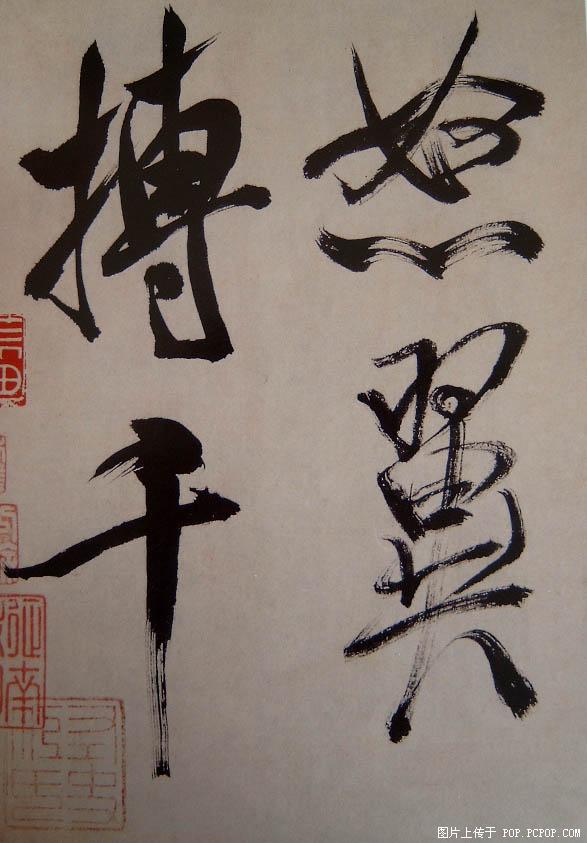 怒翼
搏千
图片上传于 POP.PCPOP.COM